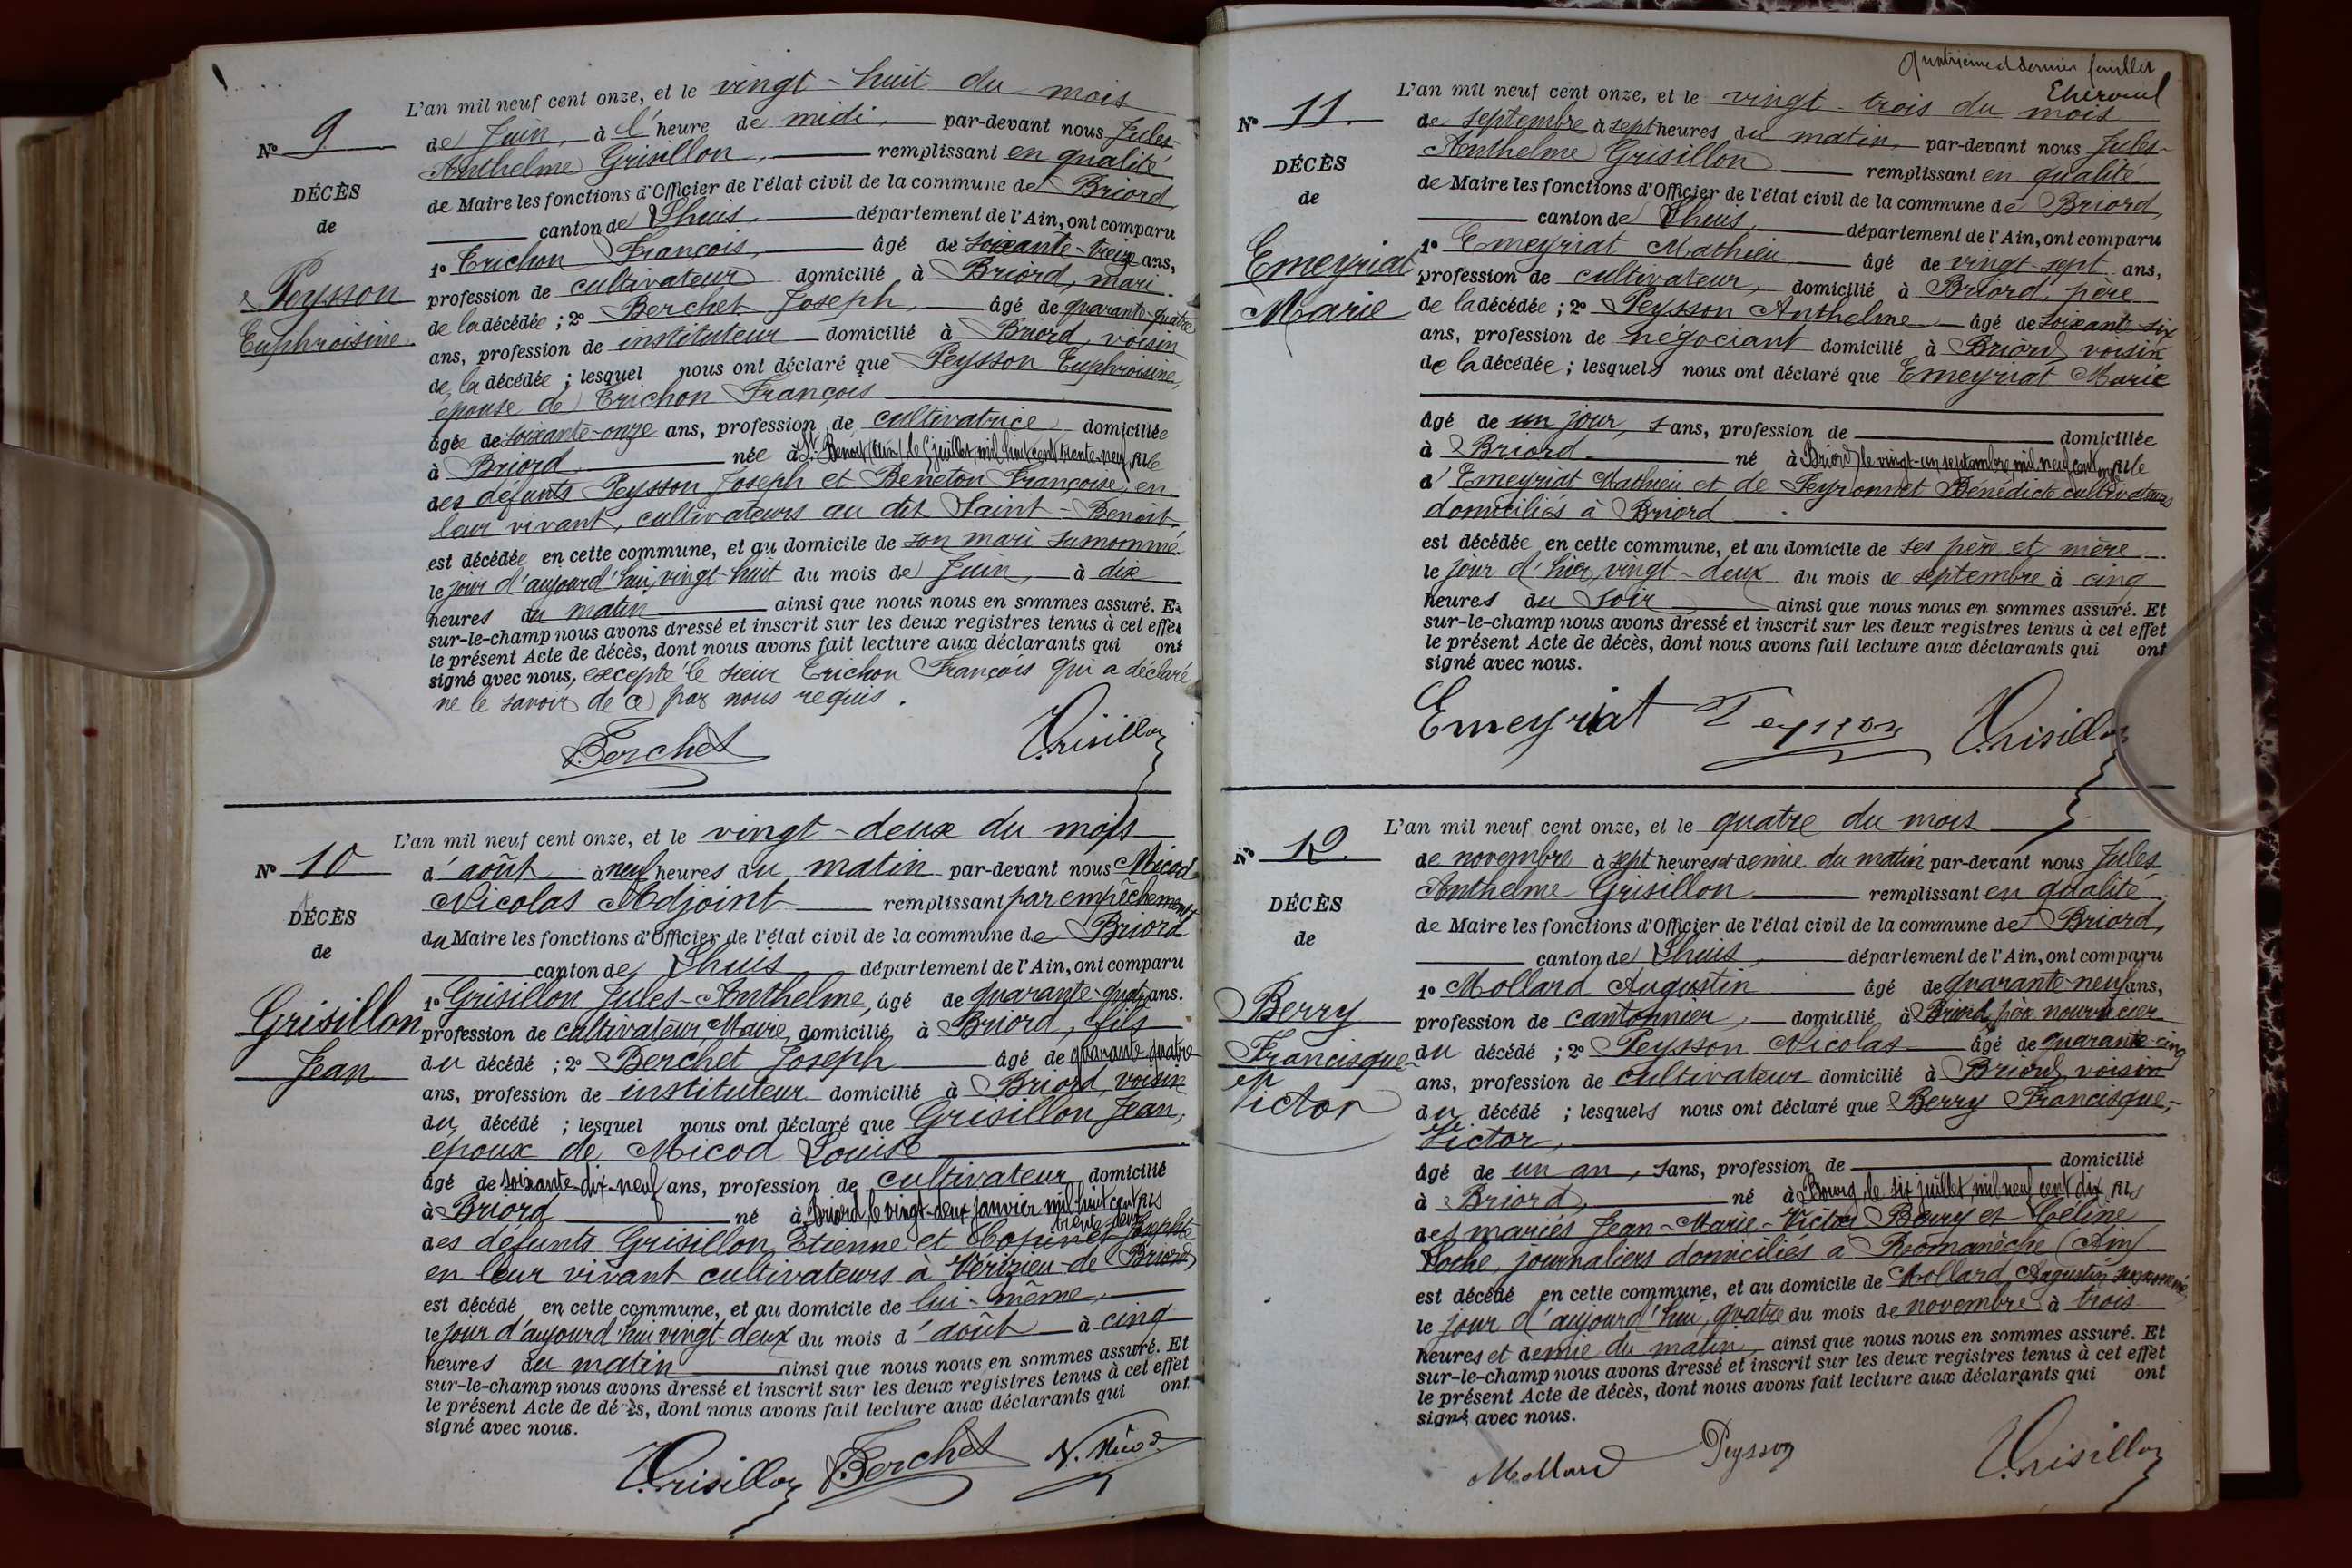 N° 9
DÉCÈS
de
Peysson
Euphroisine
L'an mil neuf cent onze, et le vingt-huit du mois
de Juin, à l'heure de midi, par-devant nous Jules-
Anthelme Grisillon, remplissant en qualité
de Maire les fonctions d'Officier de l'état civil de la commune de Briord,
canton de Lhuis, département de l'Ain, ont comparu
1° Trichon François, âgé de soixante-treize ans,
profession de cultivateur domicilié à Briord, mari
de la décédée ; 2° Berchet Joseph, âgé de quarante-quatre
ans, profession de instituteur domicilié à Briord, voisin
de la décédée ; lesquel nous ont déclaré que Peysson Euphroisine,
épouse de Trichon François
âgée de soixante-onze ans, profession de cultivatrice domiciliée
à Briord née à St Benoit (Ain) le juillet mil huit cent trente-neuf fille
des défunts Peysson Joseph et Beneton Françoise, en
leur vivant, cultivateurs au dit Saint-Benoit
est décédée en cette commune, et au domicile de son mari surnommé
le jour d'aujourd'hui, vingt-huit du mois de Juin, à dix
heures du matin ainsi que nous nous en sommes assuré. Et
sur-le-champ nous avons dressé et inscrit sur les deux registres tenus à cet effet
le présent Acte de décès, dont nous avons fait lecture aux déclarants qui ont
signé avec nous, excepté le sieur Trichon François qui a déclaré
ne le savoir de ce par nous requis.
Berchet Grisillon
N° 10
DÉCÈS
de
Grisillon
Jean
L'an mil neuf cent onze, et le vingt-deux du mois
d'août à neuf heures du matin par-devant nous Micod
Nicolas Adjoint remplissant par empêchement
du Maire les fonctions d'Officier de l'état civil de la commune de Briord
canton de Lhuis département de l'Ain, ont comparu
1° Grisillon Jules-Anthelme, âgé de quarante-quatre ans.
profession de cultivateur, Maire, domicilié à Briord, fils
du décédé ; 2° Berchet Joseph âgé de quarante-quatre
ans, profession de instituteur domicilié à Briord, voisin
du décédé ; lesquel nous ont déclaré que Grisillon Jean,
époux de Micod Louise
âgé de soixante-dix-neuf ans, profession de cultivateur domicilié
à Briord né à Briord le vingt-deux janvier mil huit cent fils
trente-deux
des défunts Grisillon Etienne et Josephte
en leur vivant cultivateurs à Vérizieu-de Briord,
est décédé en cette commune, et au domicile de lui-même,
le jour d'aujourd'hui vingt-deux du mois d'août à cinq
heures du matin ainsi que nous nous en sommes assuré. Et
sur-le-champ nous avons dressé et inscrit sur les deux registres tenus à cet effet
le présent Acte de décès, dont nous avons fait lecture aux déclarants qui ont
signé avec nous.
Grisillon Berchet N. Micod
Quatrième et dernier feuillet
N° 11.
DÉCÈS
de
Emeyriat
Marie
L'an mil neuf cent onze, et le vingt-trois du mois
de septembre à sept heures du matin, par-devant nous Jules-
Anthelme Grisillon remplissant en qualité
de Maire les fonctions d'Officier de l'état civil de la commune de Briord,
canton de Lhuis, département de l'Ain, ont comparu
1° Emeyriat Mathieu âgé de vingt-sept ans,
profession de cultivateur, domicilié à Briord, père
de la décédée ; 2° Peysson Anthelme âgé de soixante-six
ans, profession de négociant domicilié à Briord voisin
de la décédée ; lesquels nous ont déclaré que Emeyriat Marie
âgé de un jour, sans, profession de domiciliée
à Briord né à Briord, le vingt-un septembre mil neuf cent onze fille
d'Emeyriat Mathieu et de Peyronnet Bénédicte cultivateurs
domiciliés à Briord
est décédée en cette commune, et au domicile de ses père et mère
le jour d'hier, vingt-deux du mois de septembre à cinq
heures du soir ainsi que nous nous en sommes assuré. Et
sur-le-champ nous avons dressé et inscrit sur les deux registres tenus à cet effet
le présent Acte de décès, dont nous avons fait lecture aux déclarants qui ont
signé avec nous.
Emeyriat Peysson Grisillon
N° 12.
DÉCÈS
de
Berry
Francisque-
Victor
L'an mil neuf cent onze, et le quatre du mois
de novembre à sept heures et demie du matin par-devant nous Jules
Anthelme Grisillon remplissant en qualité
de Maire les fonctions d'Officier de l'état civil de la commune de Briord,
canton de Lhuis, département de l'Ain, ont comparu
1° Mollard Augustin âgé de quarante-neuf ans,
profession de cantonnier, domicilié à Briord, père nourricier
du décédé ; 2° Peysson Nicolas âgé de quarante-cinq
ans, profession de cultivateur domicilié à Briord, voisin
du décédé ; lesquels nous ont déclaré que Berry Francisque-
Victor,
âgé de un an, sans, profession de domicilié
à Briord, né à Bourg, le six juillet, mil neuf cent dix, fils
des mariés Jean-Marie-Victor Berry et Céline
Loche, journaliers domiciliés à Romanèche (Ain)
est décédé en cette commune, et au domicile de Mollard Augustin surnommé,
le jour d'aujourd'hui, quatre du mois de novembre à trois
heures et demie du matin, ainsi que nous nous en sommes assuré. Et
sur-le-champ nous avons dressé et inscrit sur les deux registres tenus à cet effet
le présent Acte de décès, dont nous avons fait lecture aux déclarants qui ont
signé avec nous.
Mollard Peysson Grisillon